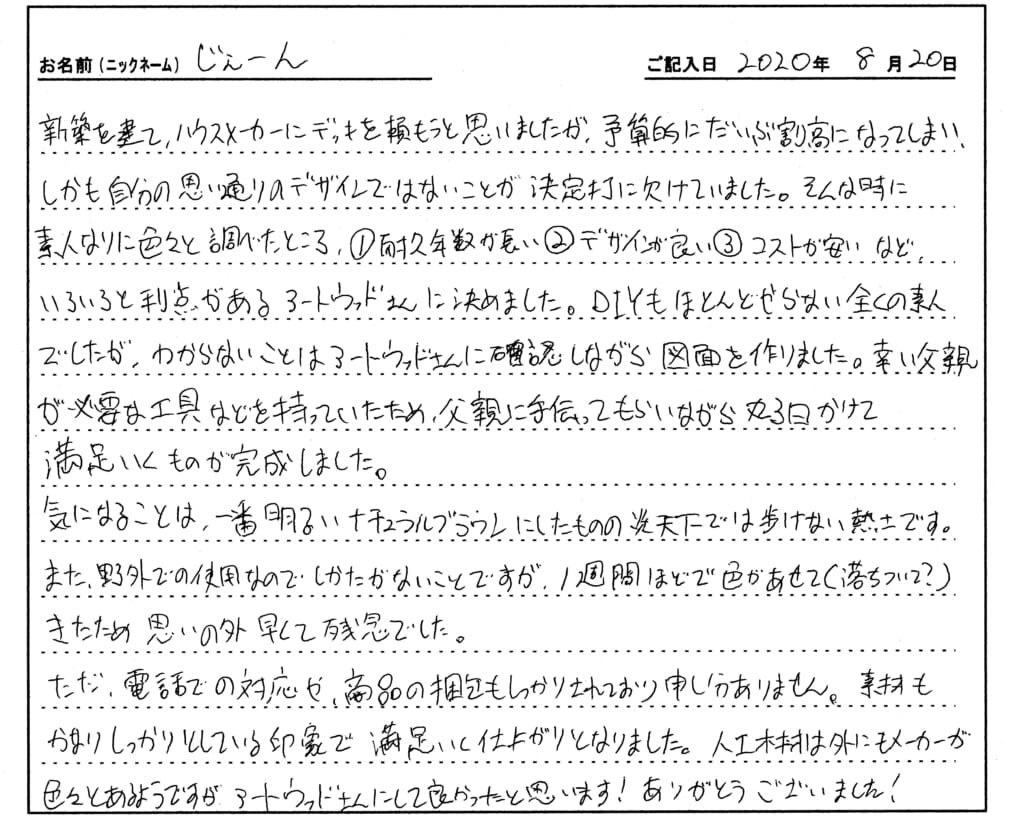 お名前(ニックネーム) じぇーん ご記入日 2020年 8月20日
新築を建て、ハウスメーカーにデッキを頼もうと思いましたが、予算的にだいぶ割高になってしまい、
しかも自分の思い通りのデザインではないことが決定打に欠けていました。そんな時に
素人なりに色々と調べたところ、①耐久年数が長い②デザインが良い③コストが安いなど、
いろいろと利点があるアートウッドさんに決めました。DIYもほとんどやらない全くの素人
でしたが、わからないことはアートウッドさんに確認しながら図面を作りました。幸い父親
が必要な工具などを持っていたため、父親に手伝ってもらいながら丸3日かけて
満足いくものが完成しました。
気になることは、一番明るいナチュラルブラウンにしたものの炎天下では歩けない熱さです。
また、野外での使用なのでしかたがないことですが、1週間ほどで色があせて(落ちついて?)
きたため思いの外早くて残念でした。
ただ、電話での対応や、商品の梱包もしっかりされており申し分ありません。素材も
かなりしっかりとしている印象で満足いく仕上がりとなりました。人工木材は外にもメーカーが
色々とあるようですがアートウッドさんにして良かったと思います!ありがとうございました!